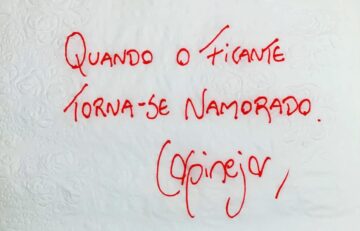 QUANDO O FICANTE
TORNA-SE NAMORADO.
Carpinejar,